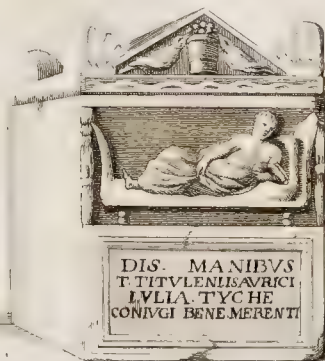 DIS. MANIBVS
T. TITVLENI ISAVRICI
IVLIA. TYCHE
CONIVGI BENE MERENTI